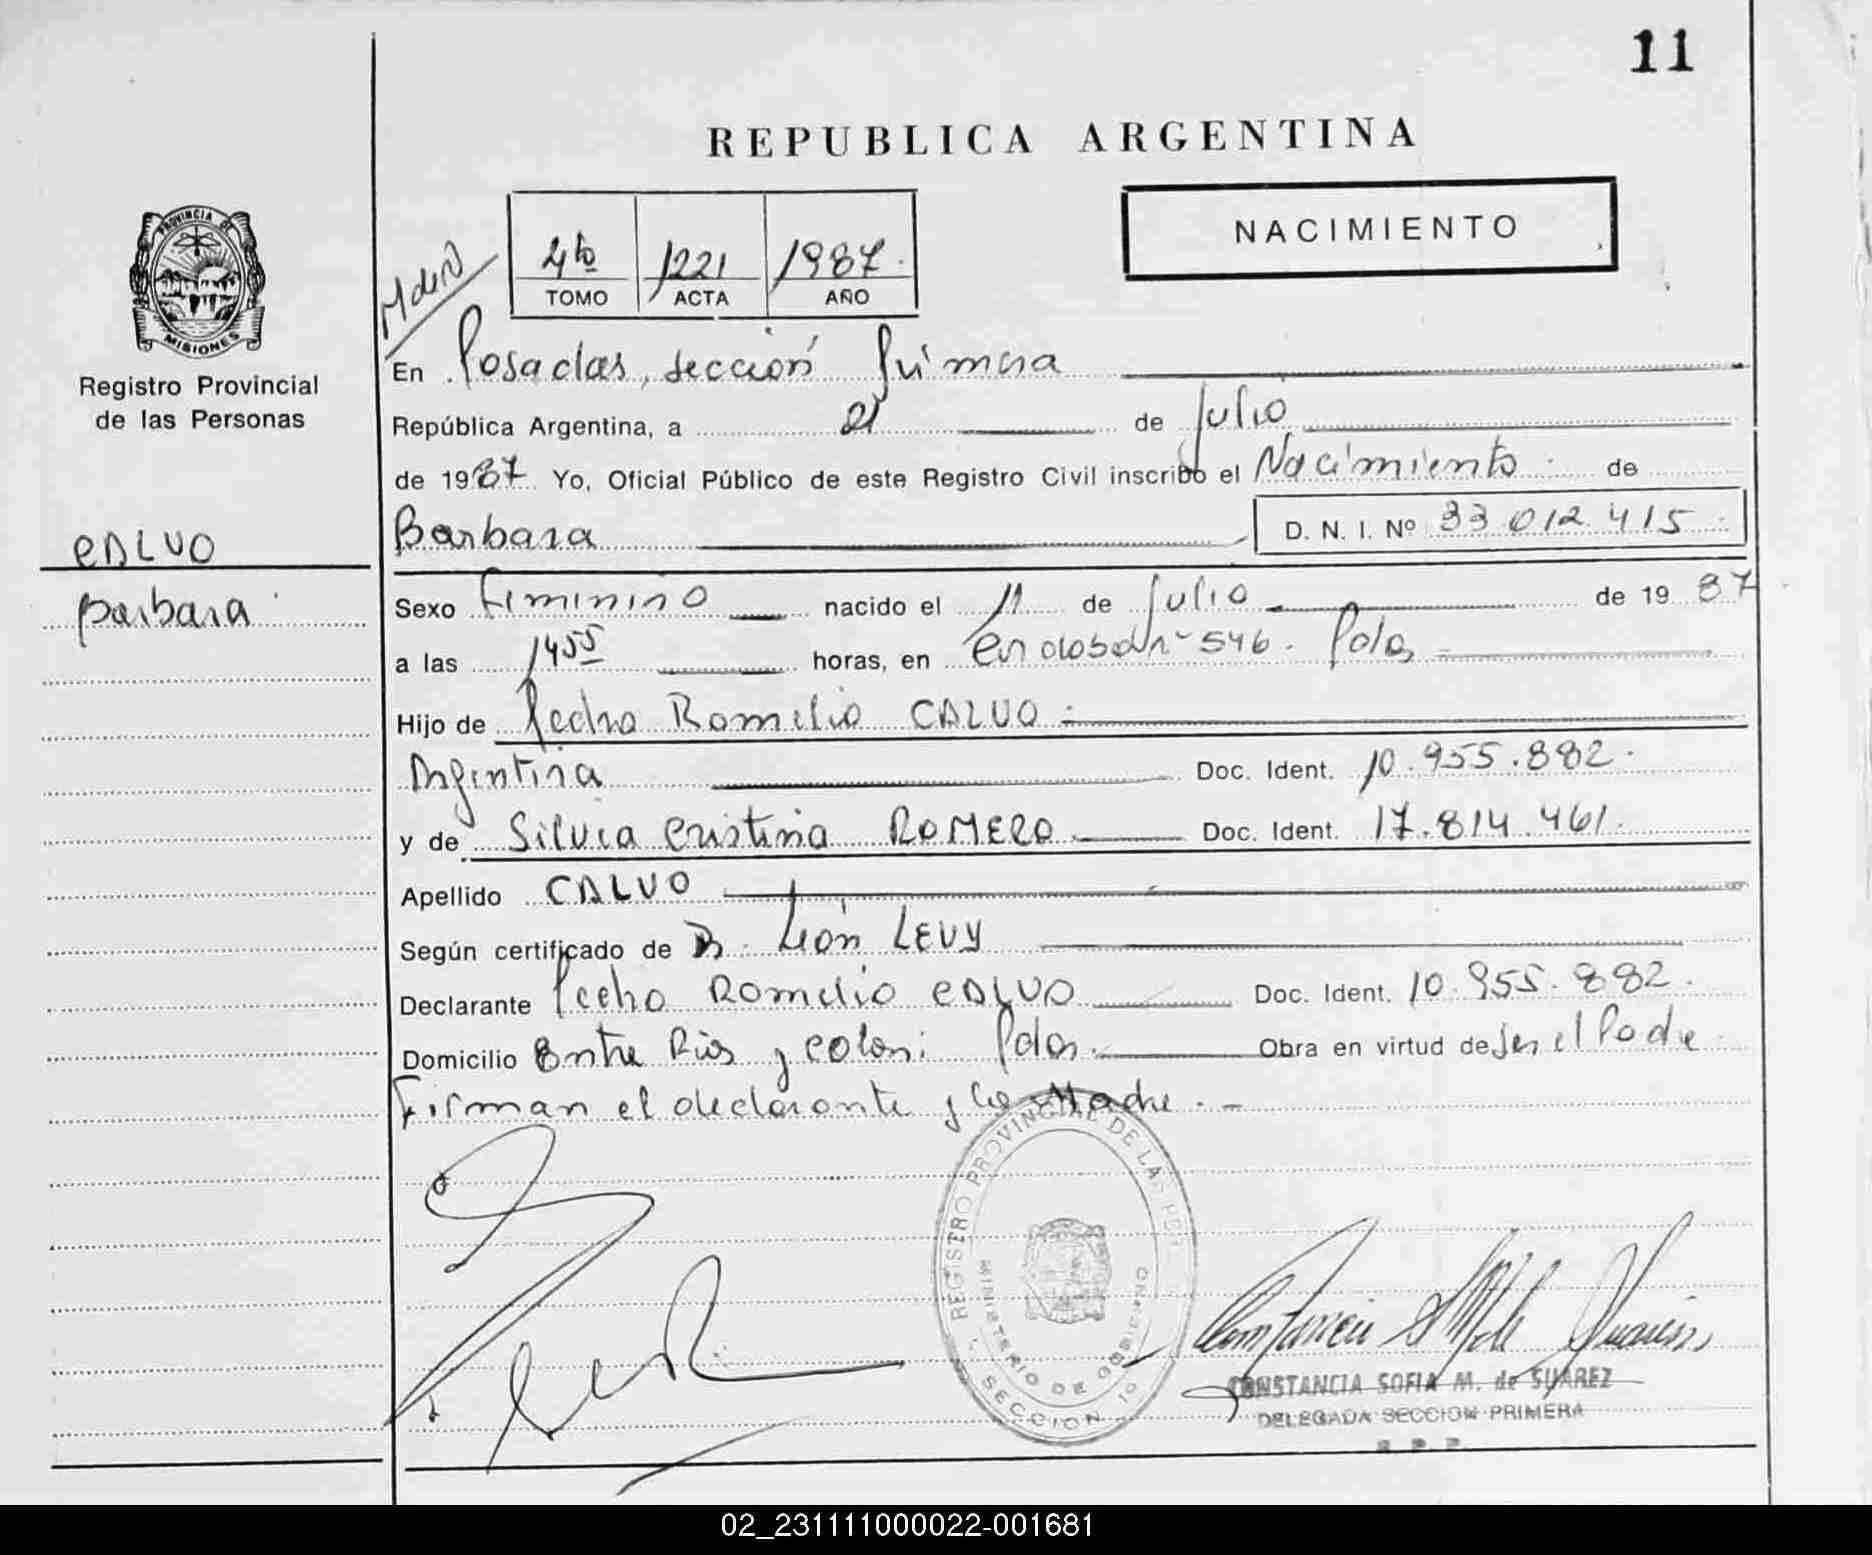 11
REPUBLICA ARGENTINA
NACIMIENTO
4to 1221 1987
TOMO ACTA AÑO
PROVINCIA DE
MISIONES
Registro Provincial
de las Personas
En Posadas, sección primera
República Argentina, a 21 de julio
de 1987 Yo, Oficial Público de este Registro Civil inscribo el Nacimiento de
CALVO
Barbara
Barbara D. N. I. Nº 33 012 415
Sexo Feminino nacido el 11 de julio de 1987
a las 1455 horas, en 546. Pdas
Hijo de Pedro Romelio CALVO
Argentina Doc. Ident. 10.955.882.
y de Silvia Cristina ROMERO Doc. Ident. 17.814.461.
Apellido CALVO
Según certificado de Dr. León LEVY
Declarante Pedro Romelio CALVO Doc. Ident. 10.955.882.
Domicilio Entre Rios y Colon: Pdas. Obra en virtud de ser el Padre
Firman el declarante y la Madre. -
REGISTRO PROVINCIAL DE LAS
MINISTERIO DE GOBIERNO
SECCION 1º
CONSTANCIA SOFIA M. de SUAREZ
DELEGADA SECCION PRIMERA
R. P. P.
02_231111000022-001681